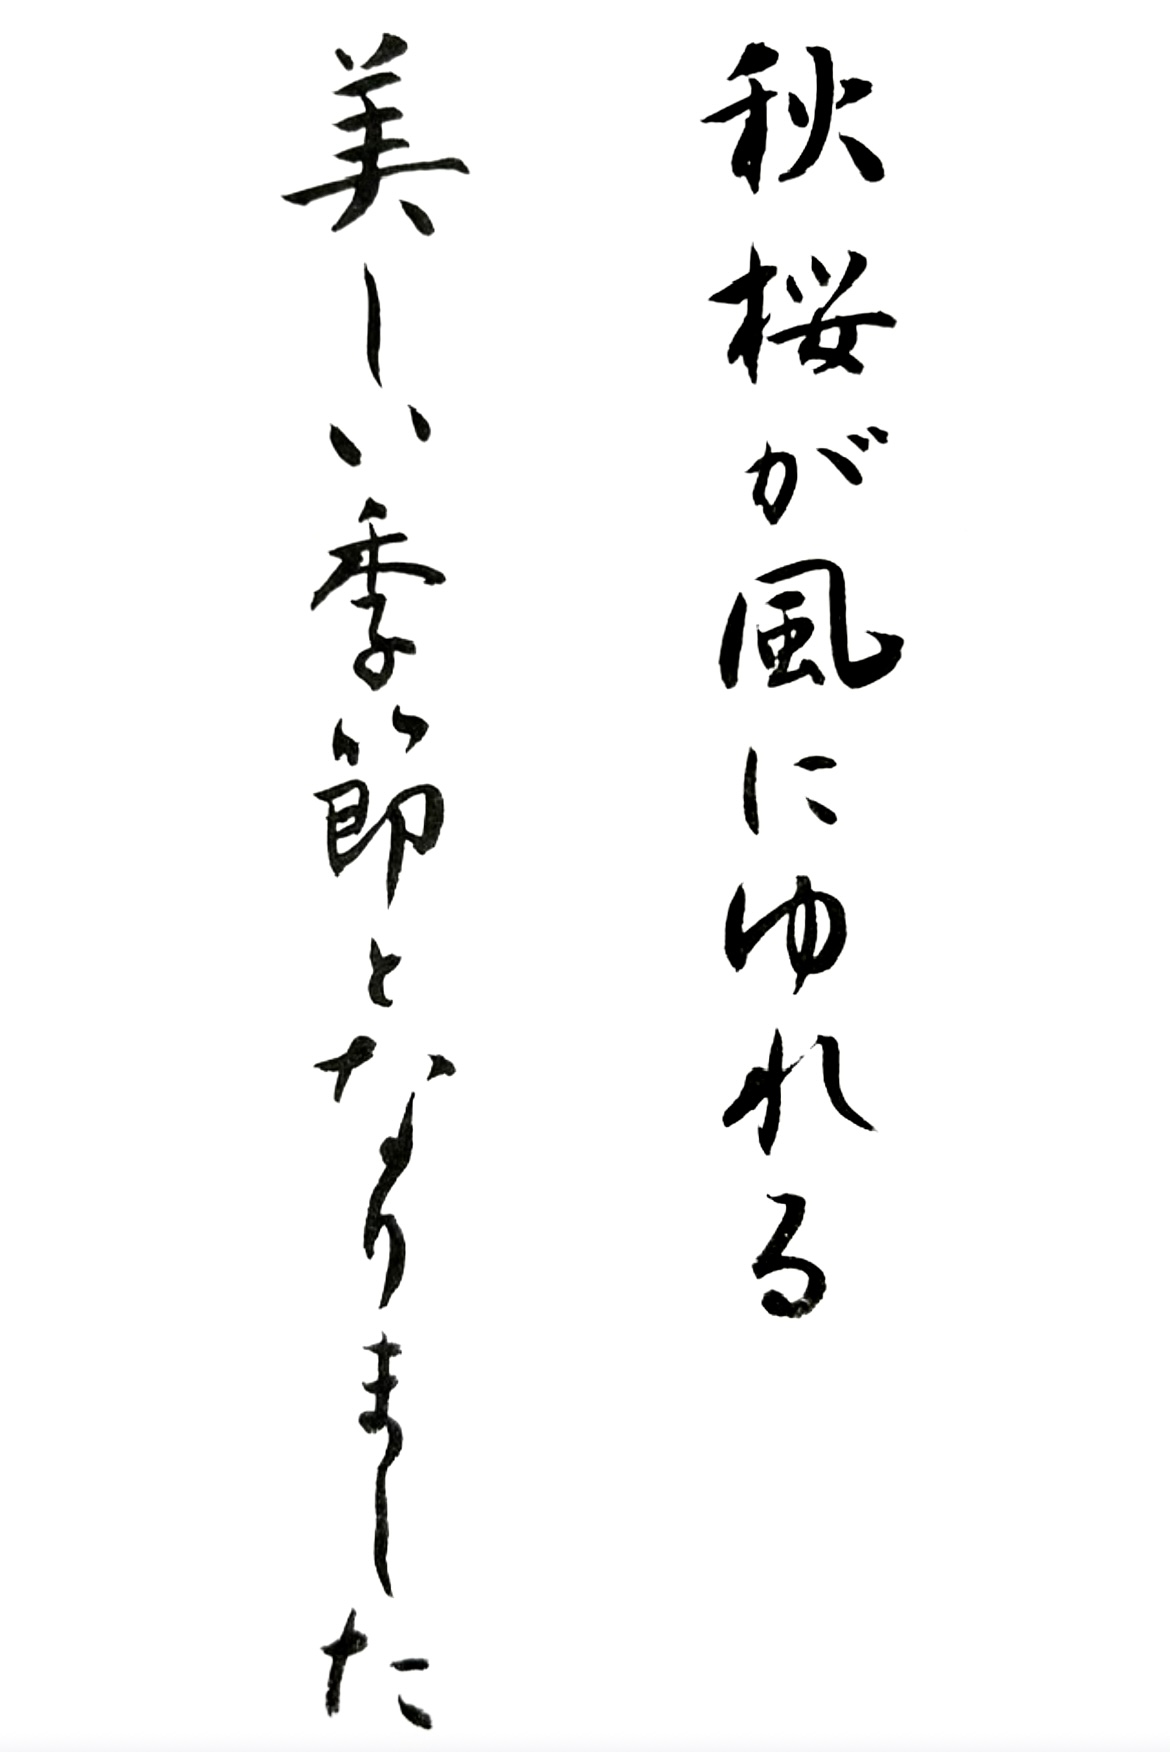 秋桜が風にゆれる
美しい季節となりました